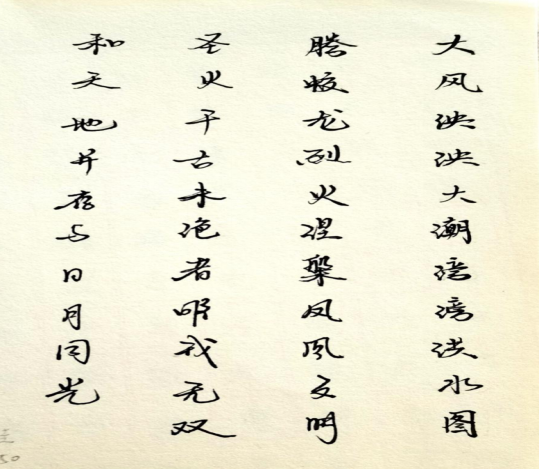 大风泱泱大潮滂滂洪水图
腾蛟龙烈火涅槃凤凰文明
圣火千古未绝者唯我无双
和天地并存与日月同光